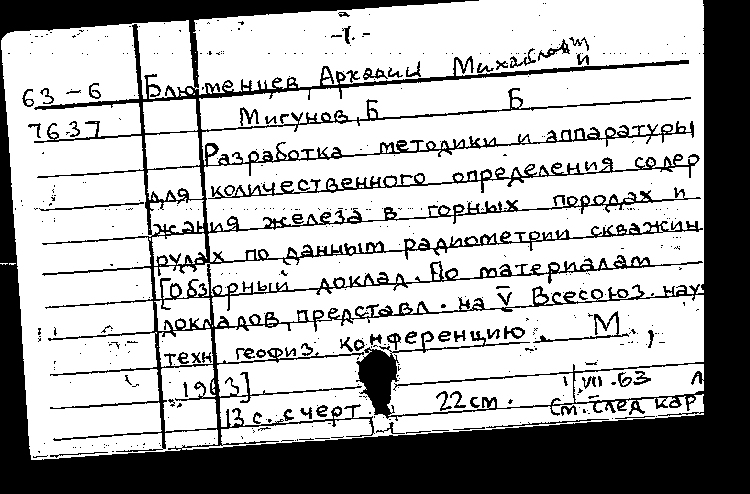 -1.-
63-6 Блюменцев, Аркадий Михайлович и
7637 Мигунов, Б Б
Разработка методики и аппаратуры
для количественного определения содер
жания железа в горных породах и
рудах по данным радиометрии скважин
[Обзорный доклад. По материалам
докладов, представл. на V Всесоюз. науч
техн. геофиз. конференцию. М.,
1963].
13 с. с черт 22 см.
VII.63
См. след кар